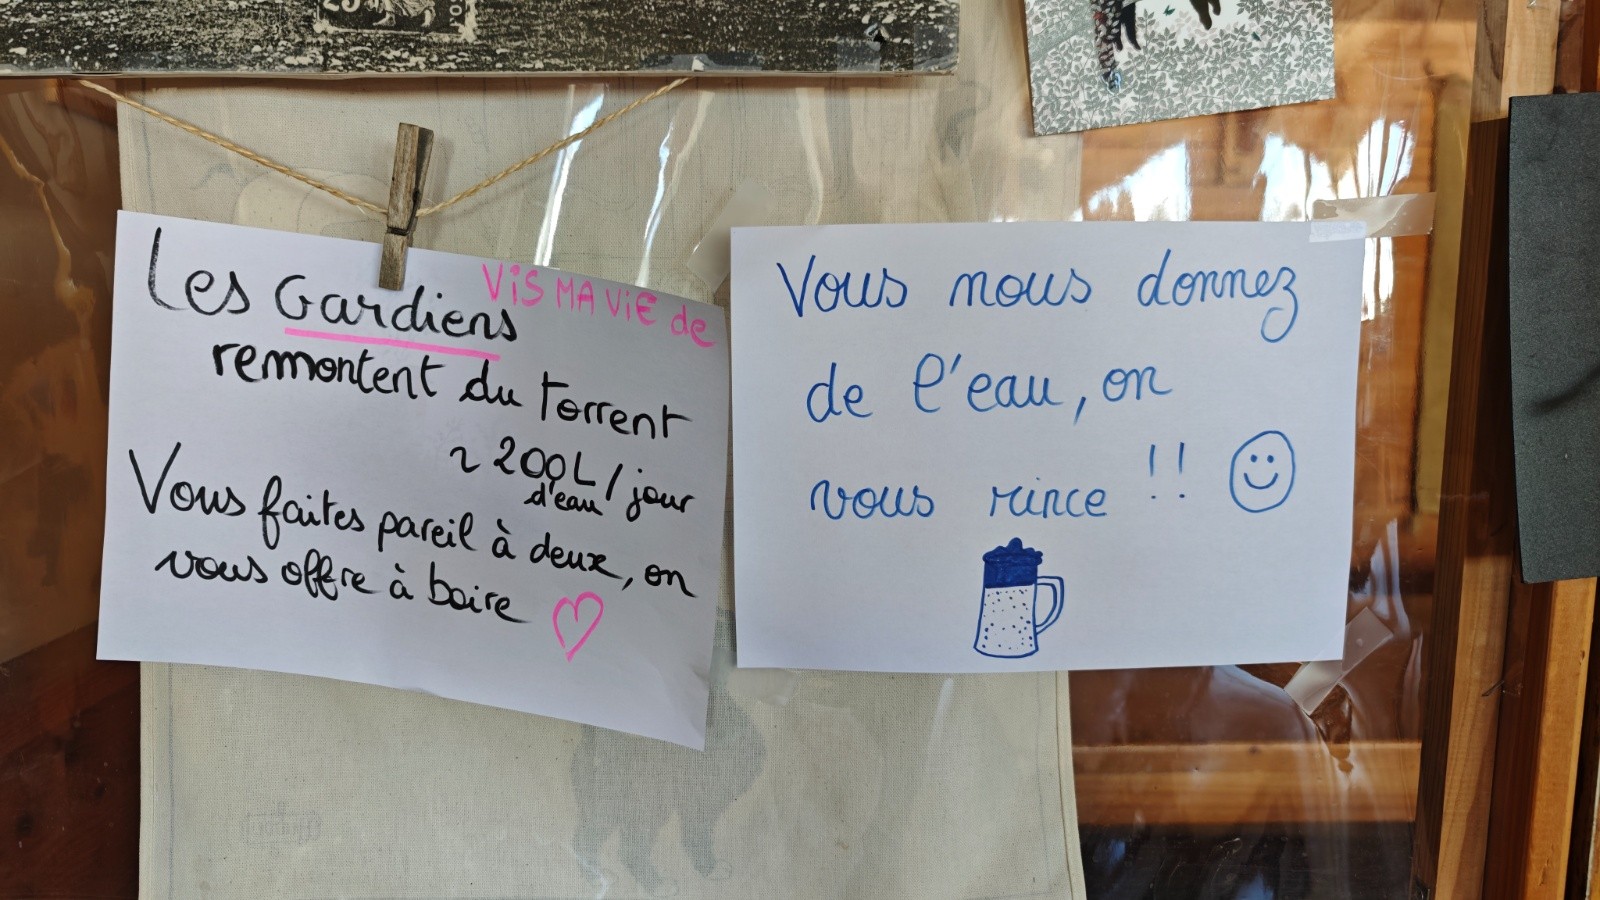 Les Gardiens
VIS MA VIE de
remontent du torrent
~ 200L / jour
d'eau
Vous faites pareil à deux, on
vous offre à boire
Vous nous donnez
de l'eau, on
vous rince !!